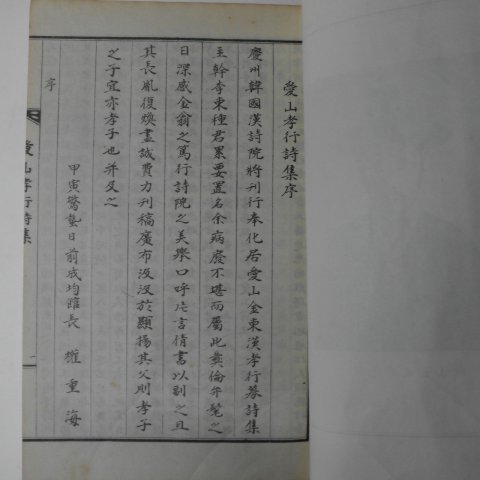 愛山孝行詩集序
慶州韓國漢詩院將刊行奉化居愛山金東漢孝行募詩集
主幹李東種君累要置名余病廢不堪而屬此彛倫弁髦之
日深感金翁之篤行詩院之美擧口呼片言倩書以副之且
其長胤復煥盡誠費力刊稿廣布汲汲於顯揚其父則孝子
之子宜亦孝子也并及之
甲寅驚蟄日前成均館長 權重海
序
愛山孝行詩集
一